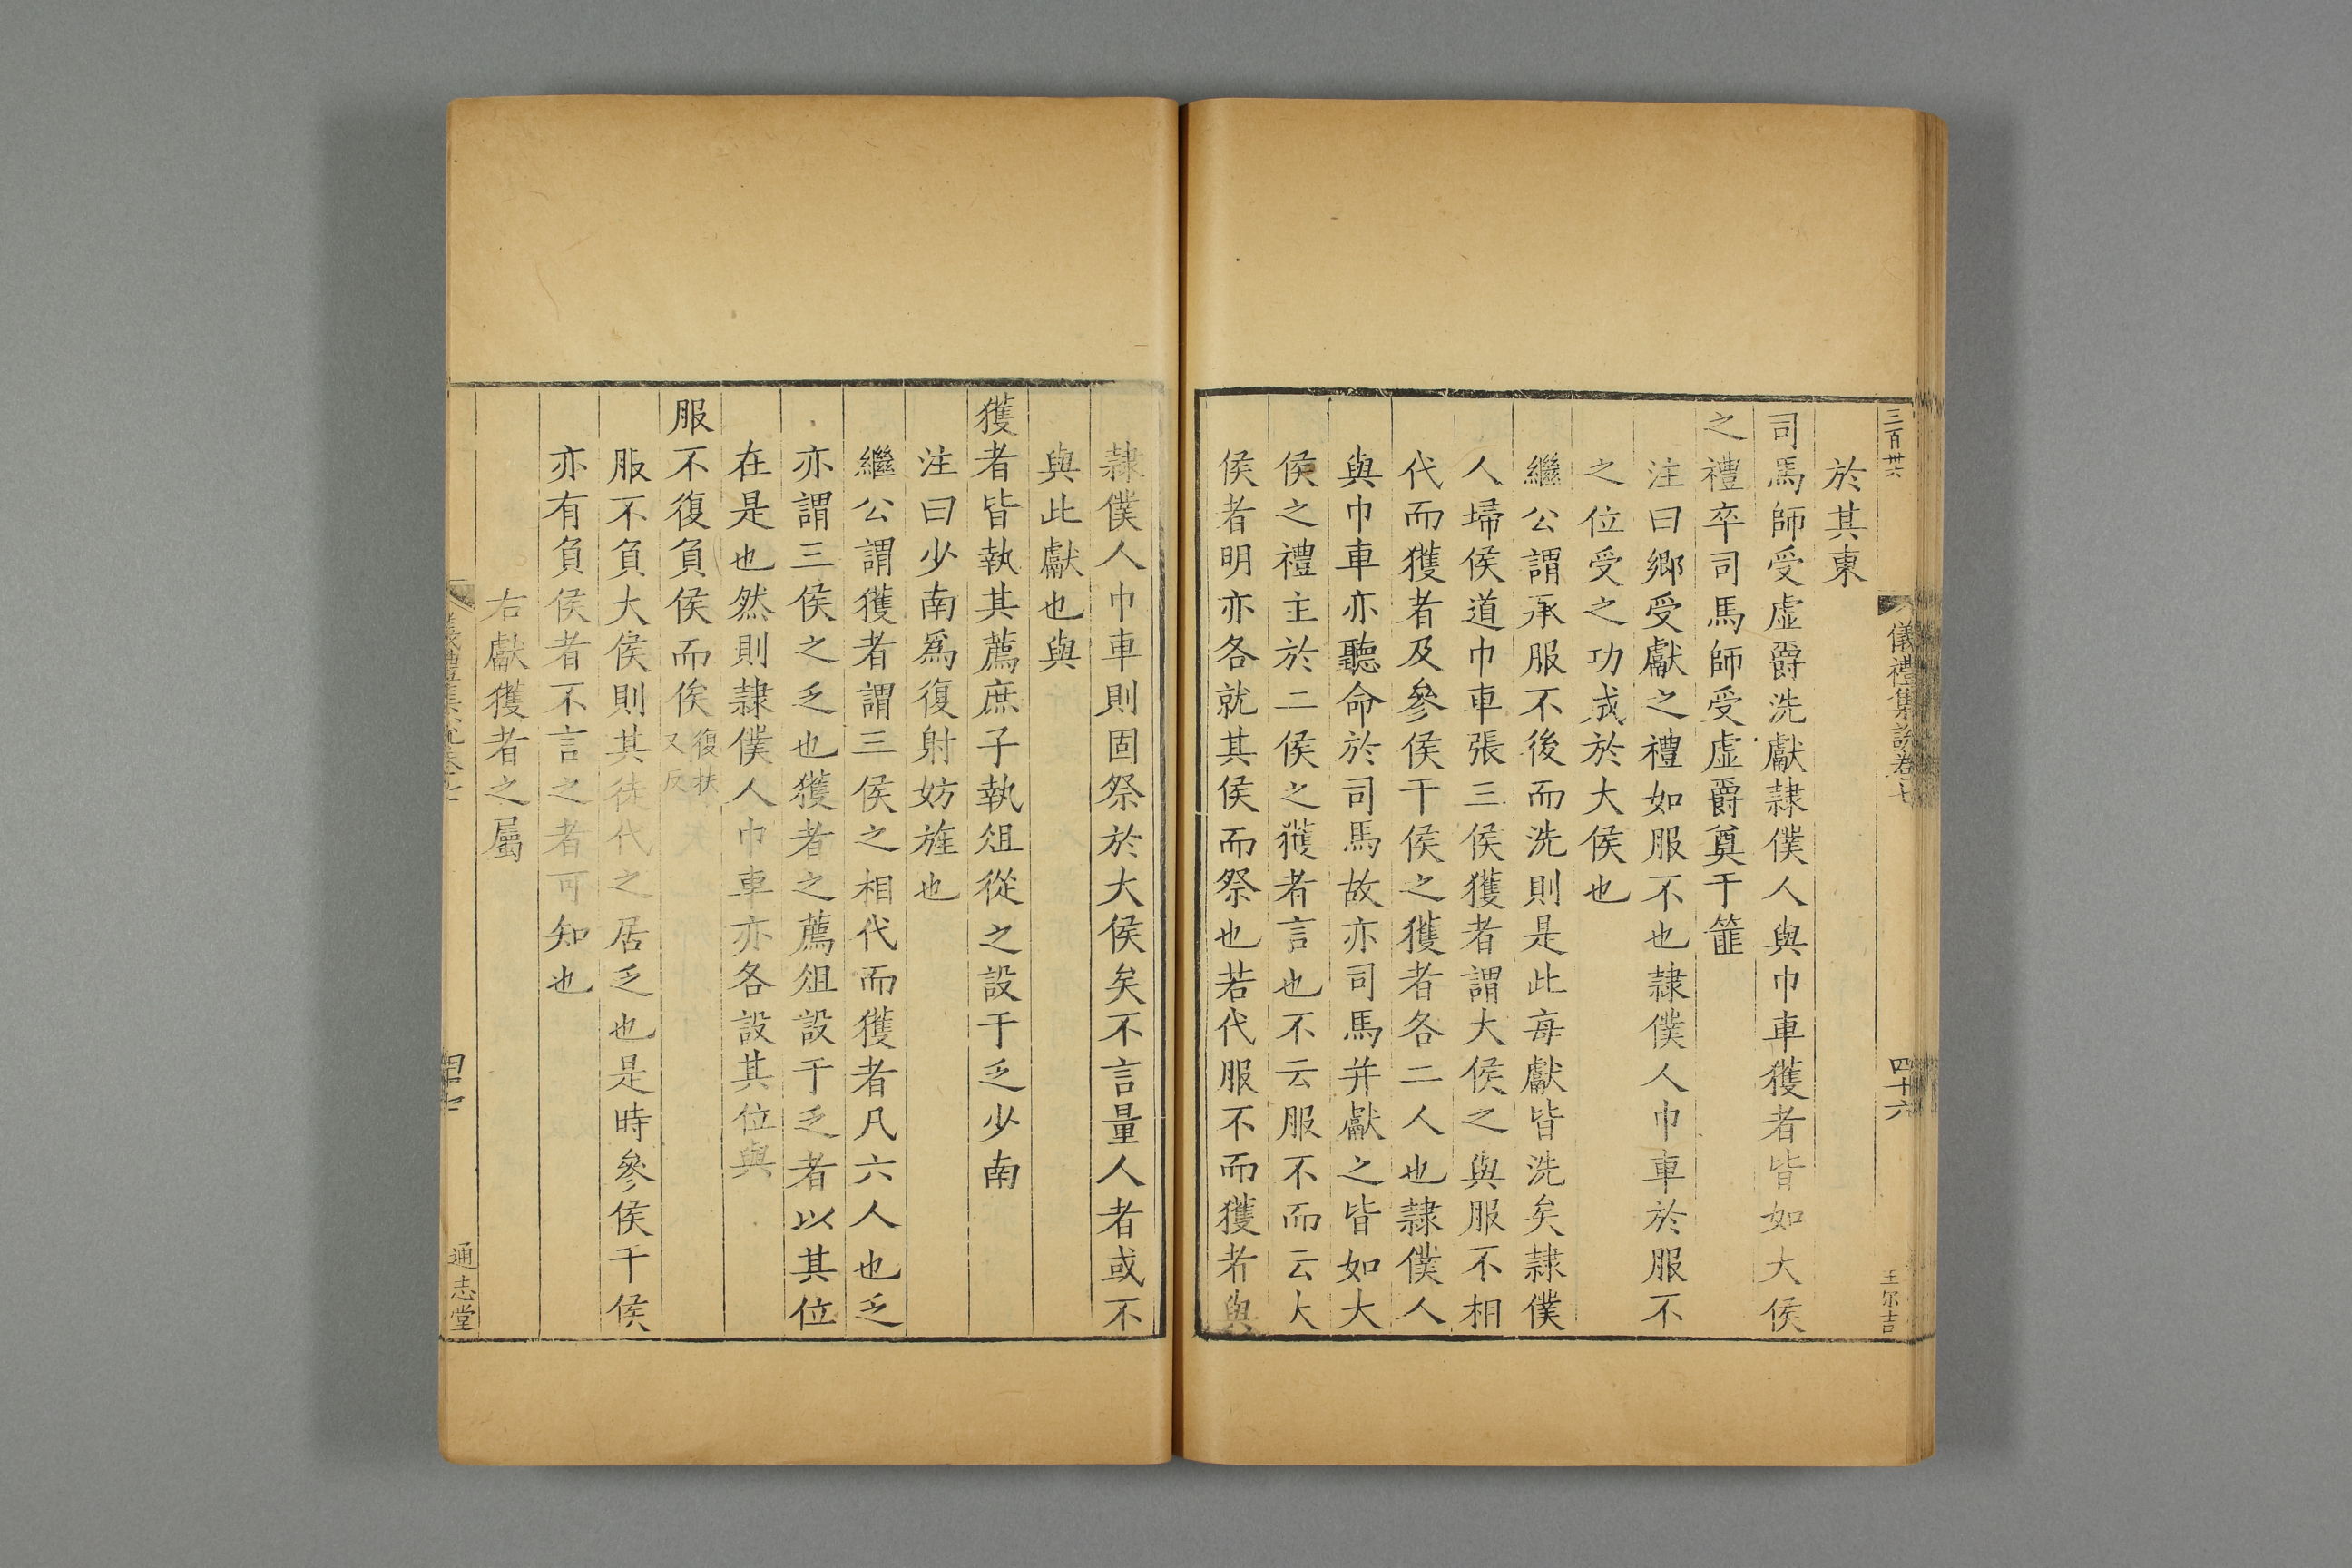 三百卅六
儀禮集說卷七
四十六
王尔吉
於其東
司馬師受虛爵洗獻隷僕人與巾車獲者皆如大侯
之禮卒司馬師受虛爵奠于篚
注曰鄉受獻之禮如服不也隷僕人巾車於服不
之位受之功成於大侯也
繼公謂承服不後而洗則是此每獻皆洗矣隷僕
人埽侯道巾車張三侯獲者謂大侯之與服不相
代而獲者及參侯干侯之獲者各二人也隷僕人
與巾車亦聽命於司馬故亦司馬并獻之皆如大
侯之禮主於二侯之獲者言也不云服不而云大
侯者明亦各就其侯而祭也若代服不而獲者與
隷僕人巾車則固祭於大侯矣不言量人者或不
與此獻也與
獲者皆執其薦庶子執俎從之設于乏少南
注曰少南爲復射妨旌也
繼公謂獲者謂三侯之相代而獲者凡六人也乏
亦謂三侯之乏也獲者之薦俎設于乏者以其位
在是也然則隷僕人巾車亦各設其位與
服不復負侯而俟復扶又反
服不負大侯則其徒代之居乏也是時參侯干侯
亦有負侯者不言之者可知也
右獻獲者之屬
儀禮集說卷七
四十七
通志堂